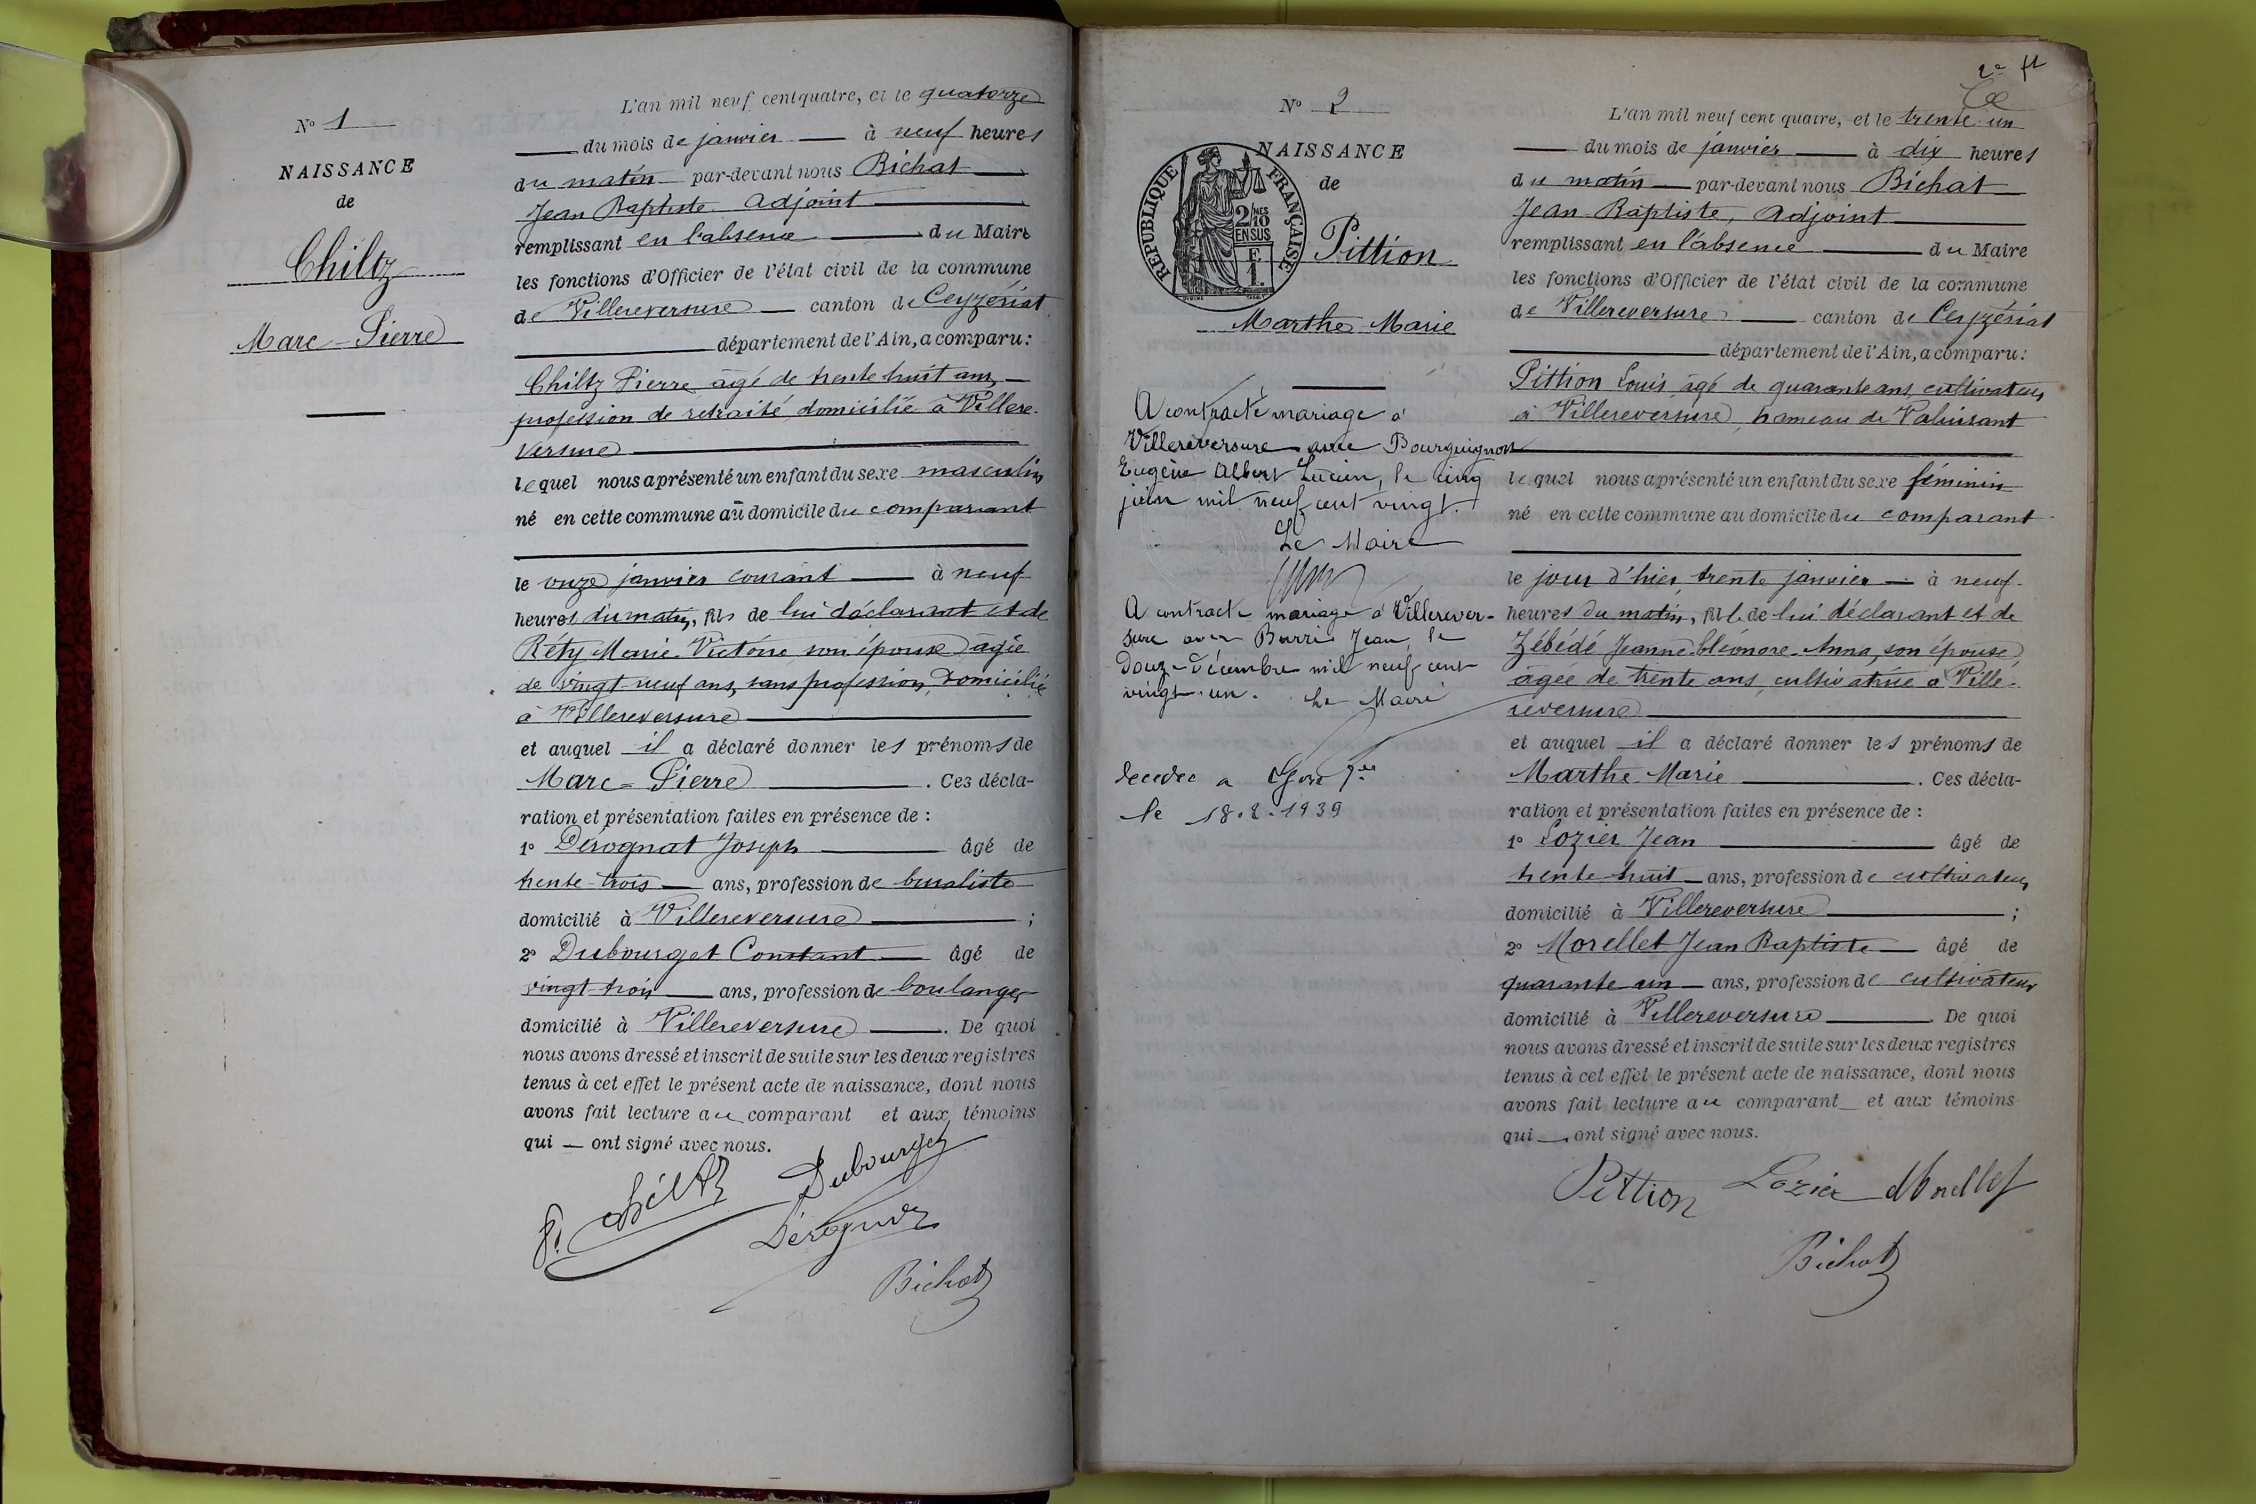 N° 1
NAISSANCE
de
Chiltz
Marc-Pierre
L'an mil neuf cent quatre, et le quatorze
du mois de janvier à neuf heures
du matin par-devant nous Bichat
Jean Baptiste adjoint
remplissant en l'absence du Maire
les fonctions d'Officier de l'état civil de la commune
de Villereversure canton de Ceyzériat
département de l'Ain, a comparu:
Chiltz Pierre âgé de trente huit ans,
profession de retraité domicilié à Villere-
versure
lequel nous a présenté un enfant du sexe masculin
né en cette commune au domicile du comparant
le onze janvier courant à neuf
heures du matin, fils de lui déclarant et de
Réty Marie Victoire son épouse âgée
de vingt-neuf ans, sans profession, domiciliée
à Villereversure
et auquel il a déclaré donner les prénoms de
Marc=Pierre. Ces décla-
ration et présentation faites en présence de :
1° Dérognat Joseph âgé de
trente-trois ans, profession de buraliste
domicilié à Villereversure ;
2° Dubourget Constant âgé de
vingt-trois ans, profession de boulanger
domicilié à Villereversure. De quoi
nous avons dressé et inscrit de suite sur les deux registres
tenus à cet effet le présent acte de naissance, dont nous
avons fait lecture au comparant et aux témoins
qui ont signé avec nous.
P. Chiltz Dubourget
Dérognat
Bichat
2e
N° 2
NAISSANCE
de
RÉPUBLIQUE FRANÇAISE
2/10 MES
EN SUS
F.
1.
Pittion
Marthe Marie
A contracté mariage à
Villereversure avec Bourguignon
Eugène Albert Lucien, le cinq
juin mil neuf cent vingt.
Le Maire
A contracté mariage à Villerever-
sure avec Jean, le
douze décembre mil neuf cent
vingt-un. Le Maire
décédée a
le 18.2.1939
L'an mil neuf cent quatre, et le trente un
du mois de janvier à dix heures
du matin par-devant nous Bichat
Jean-Baptiste, adjoint
remplissant en l'absence du Maire
les fonctions d'Officier de l'état civil de la commune
de Villereversure canton de Ceyzériat
département de l'Ain, a comparu:
Pittion Louis âgé de quarante ans, cultivateur
à Villereversure, hameau de
lequel nous a présenté un enfant du sexe féminin
né en cette commune au domicile du comparant
le jour d'hier trente janvier à neuf
heures du matin, fille de lui déclarant et de
Zébédé Jeanne-Eléonore-Anna, son épouse
âgée de trente ans, cultivatrice à Ville-
reversure
et auquel il a déclaré donner les prénoms de
Marthe-Marie. Ces décla-
ration et présentation faites en présence de :
1° Lozier Jean âgé de
trente-huit ans, profession de cultivateur
domicilié à Villereversure ;
2° Morellet Jean Baptiste âgé de
quarante un ans, profession de cultivateur
domicilié à Villereversure. De quoi
nous avons dressé et inscrit de suite sur les deux registres
tenus à cet effet le présent acte de naissance, dont nous
avons fait lecture au comparant et aux témoins
qui ont signé avec nous.
Pittion Lozier Morellet
Bichat